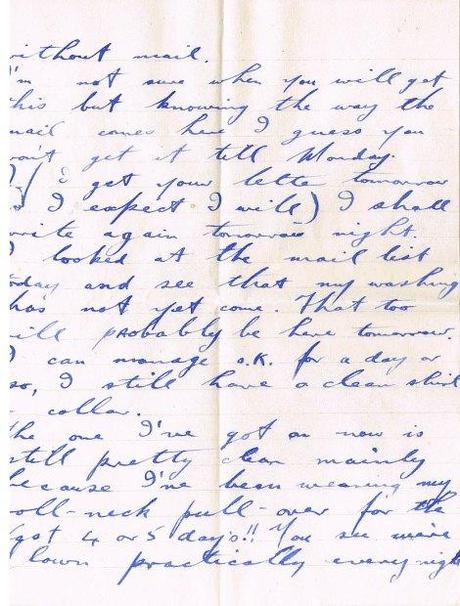 without mail.
I'm not sure when you will get
this but knowing the way the
mail comes here I guess you
won't get it till Monday.
If I get your letter tomorrow
(as I expect I will) I shall
write again tomorrow night.
I looked at the mail list
today and see that my washing
has not yet come. That too
will probably be here tomorrow.
I can manage o.k. for a day or
so, I still have a clean shirt
+ collar.
The one I've got on now is
still pretty clean mainly
because I've been wearing my
roll-neck pull-over for the
last 4 or 5 days!! You see we're
flown practically every night